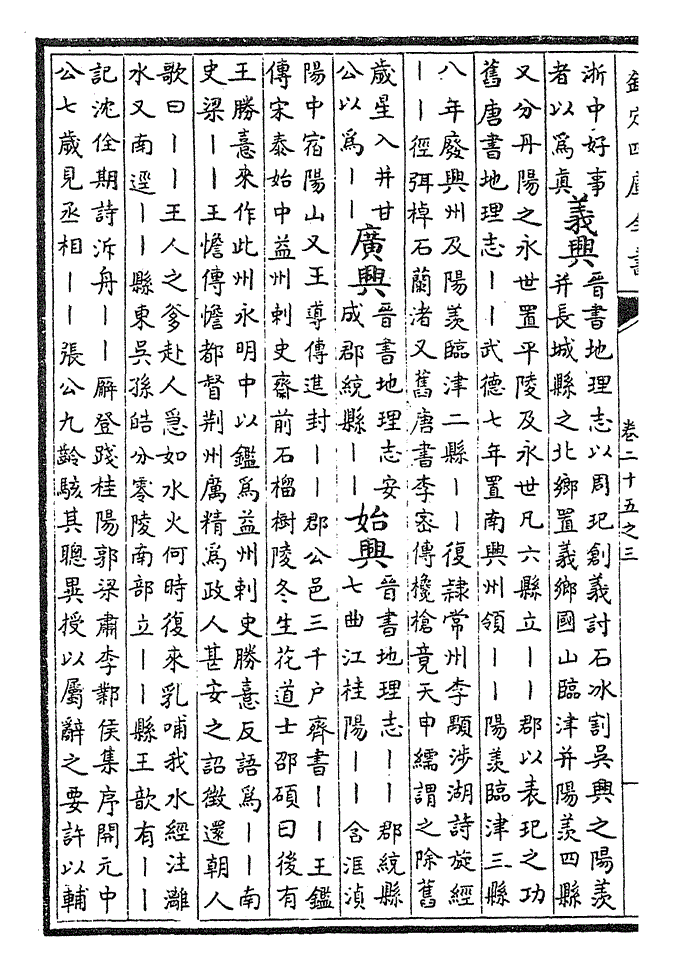 欽定四庫全書
卷二十五之三
浙中好事
者以爲真
義興
晉書地理志以周玘創義討石冰割吳興之陽羨
并長城縣之北鄉置義鄉國山臨津并陽羨四縣
又分丹陽之永世置平陵及永世凡六縣立丨丨郡以表玘之功
舊唐書地理志丨丨武德七年置南興州領丨丨陽羨臨津三縣
八年廢興州及陽羨臨津二縣丨丨復隸常州李顒涉湖詩旋經
丨丨徑弭棹石蘭渚又舊唐書李密傳欃槍竟天申繻謂之除舊
歲星入井甘
公以爲丨丨
廣興
晉書地理志安
成郡統縣丨丨
始興
晉書地理志丨丨郡統縣
七曲江桂陽丨丨含洭湞
陽中宿陽山又王導傳進封丨丨郡公邑三千户齊書丨丨王鑑
傳宋泰始中益州刺史齋前石榴樹陵冬生花道士邵碩曰後有
王勝憙來作此州永明中以鑑爲益州刺史勝憙反語爲丨丨南
史梁丨丨王憺傳憺都督荆州厲精爲政人甚安之詔徵還朝人
歌曰丨丨王人之爹赴人急如水火何時復來乳哺我水經注灕
水又南逕丨丨縣東吳孫皓分零陵南部立丨丨縣王歆有丨丨
記沈佺期詩泝舟丨丨廨登踐桂陽郭梁肅李鄴侯集序開元中
公七歲見丞相丨丨張公九齡駭其聰異授以屬辭之要許以輔